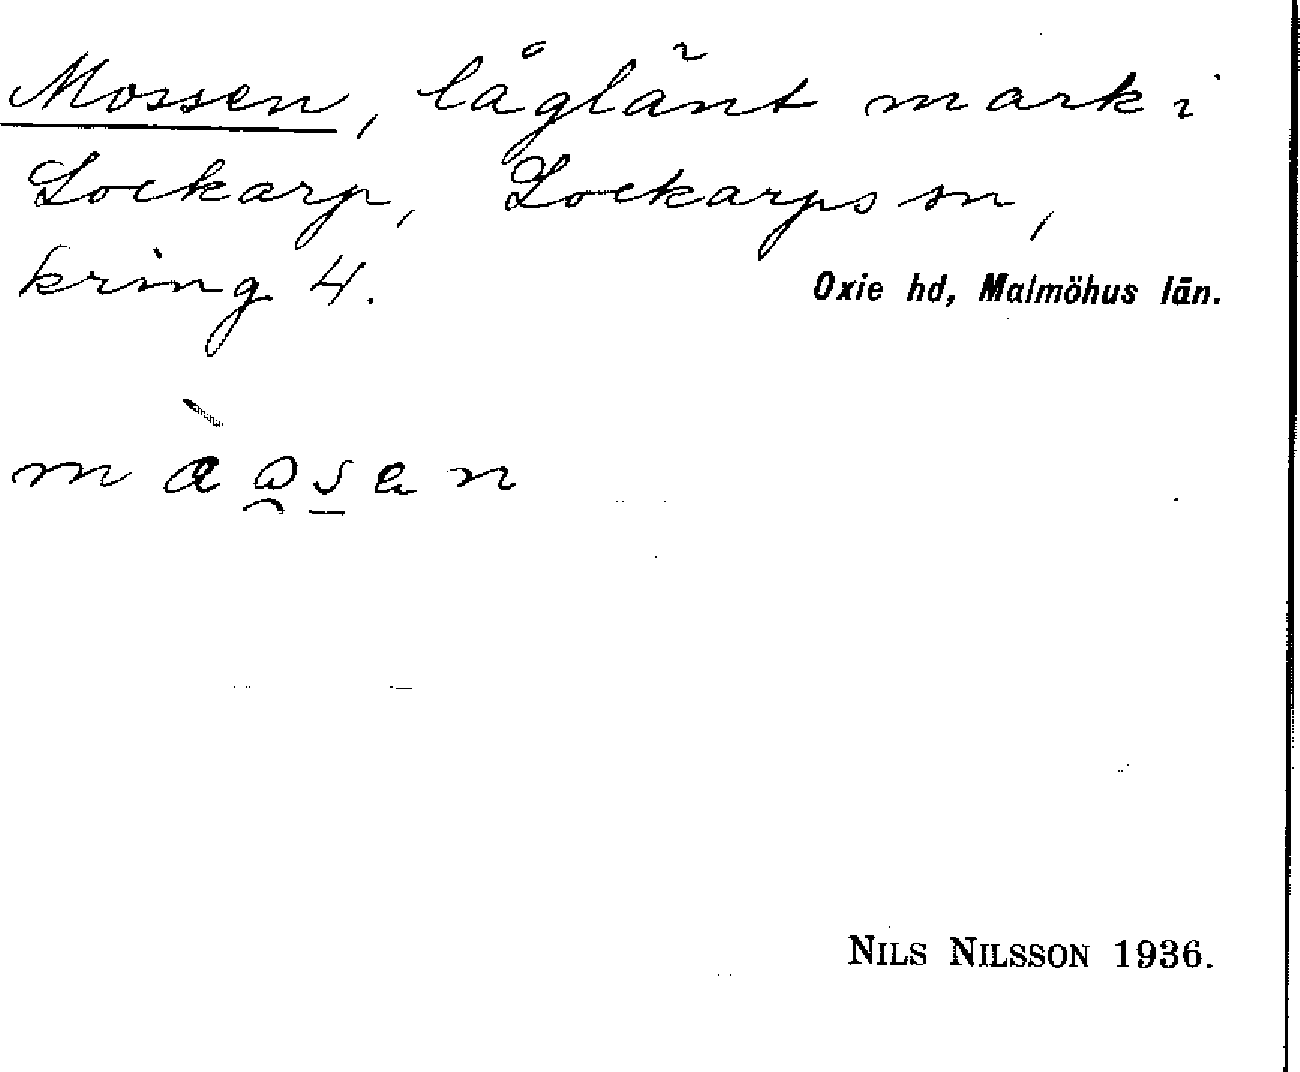 Mossen, låglänt mark i
Lockarp, Lockarps sn,
kring 4.
Oxie hd, Malmöhus län.
NILS NILSSON 1936.